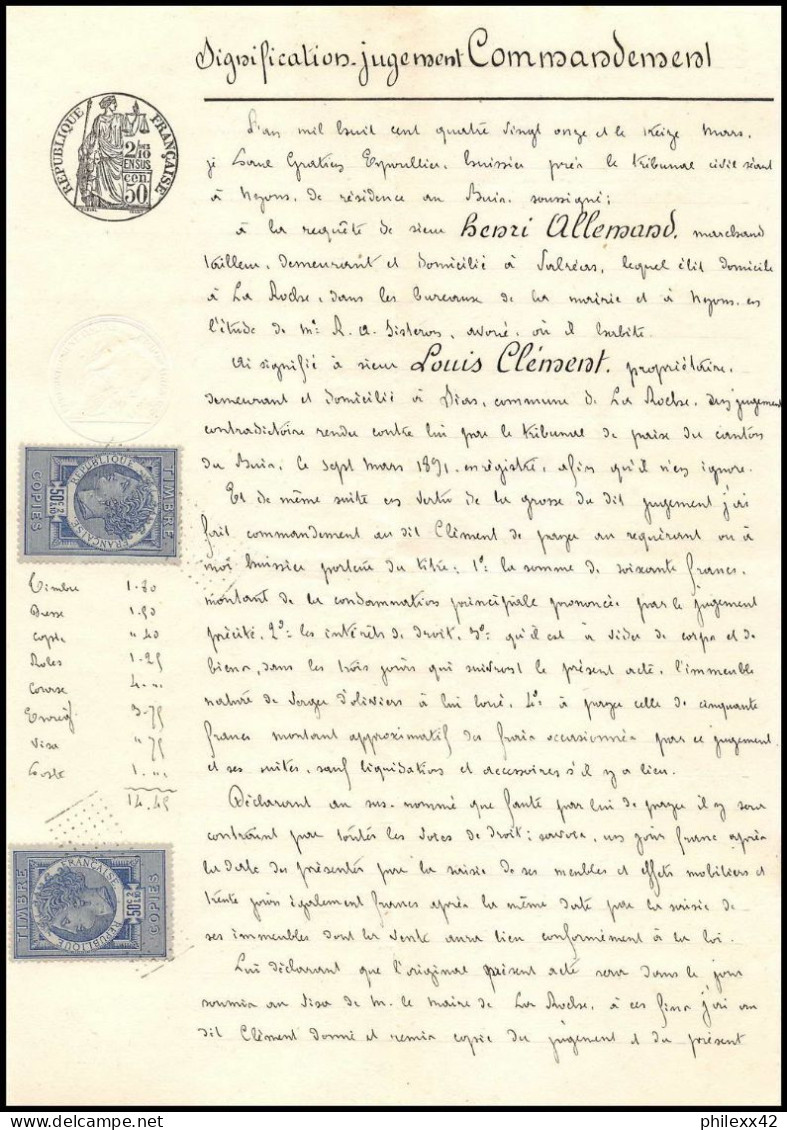 Signification-jugement Commandement
L'an mil huit cent quatre vingt onze et le treize mars,
je huissier près le tribunal civil séant
à Nyons, de résidence au Buis, soussigné;
à la requête de sieur Henri Allemand, marchand
tailleur, demeurant et domicilié à Valréas, lequel élit domicile
à La Roche, dans les bureaux de la mairie et à Nyons, en
l'étude de Me R. A. Sisteron, avoué, où il habite.
Ai signifié à sieur Louis Clément, propriétaire,
demeurant et domicilié à commune de La Roche, jugement
contradictoire rendu contre lui par le tribunal de paix du canton
du Buis, le sept mars 1891, enregistré, afin qu'il n'en ignore.
Et de même suite en vertu de la grosse du dit jugement j'ai
fait commandement au dit Clément de payer au requérant ou à
moi huissier porteur du titre: 1° la somme de soixante francs,
montant de la condamnation principale prononcée par le jugement
précité, 2° les intérêts de droit, 3° qu'il est à vider de corps et de
biens, dans les trois jours qui suivront le présent acte, l'immeuble
nature de verger d'oliviers à lui loué, 4° à payer celle de cinquante
francs montant approximatif des frais occasionnés par ce jugement
et ses suites, sauf liquidation et accessoires s'il y a lieu.
Déclarant au sus-nommé que faute par lui de payer il y sera
contraint par toutes les voies de droit: savoir, un jour franc après
la date des présentes par la saisie de ses meubles et effets mobiliers et
trente jours également francs après la même date par la saisie de
ses immeubles dont la vente aura lieu conformément à la loi.
Lui déclarant que l'original présent acte sera dans le jour
soumis au visa de M. le maire de La Roche, à ces fins j'ai au
dit Clément donné et remis copie du jugement et du présent
RÉPUBLIQUE FRANÇAISE
2/10
EN SUS
50 cen
TIMBRE
RÉPUBLIQUE FRANÇAISE
50c 2/10
COPIES
Timbre 1.80
copie " 40
Roles 1.25
Course 4. "
Enreg. 3.75
Visa " 75
Poste 1. "
14.45
TIMBRE
RÉPUBLIQUE FRANÇAISE
50c 2/10
COPIES
philexx42